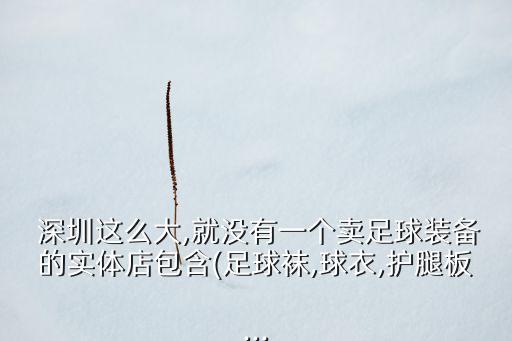 深圳这么大,就没有一个卖足球装备
的实体店包含(足球袜,球衣,护腿板
...